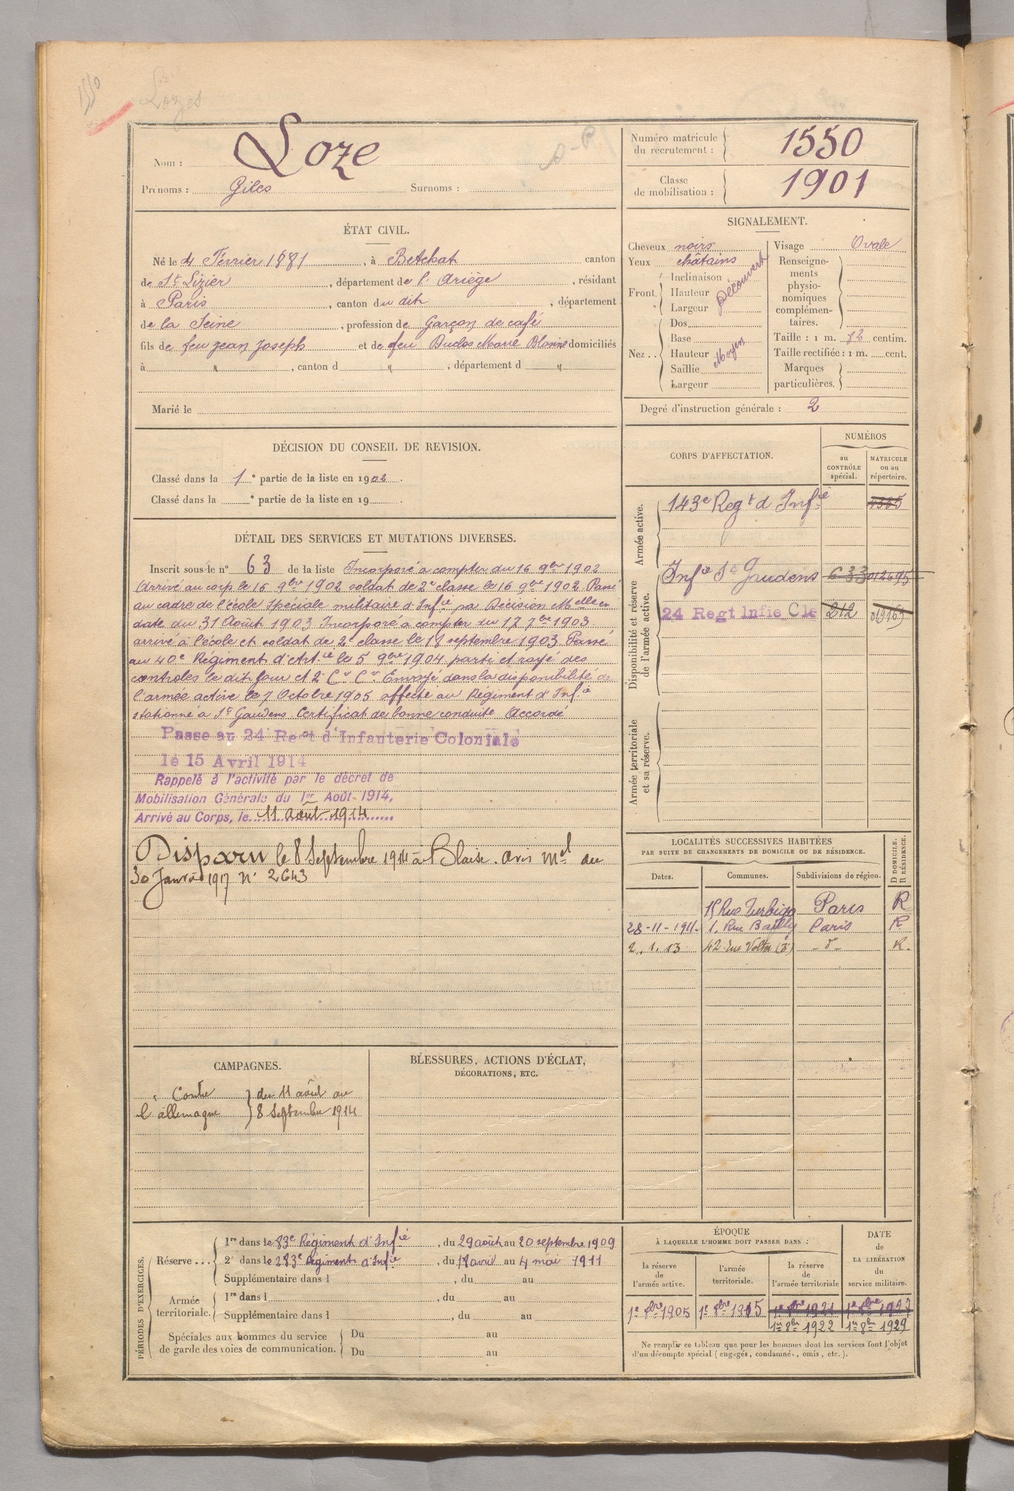 1550
Lozes
Nom : Loze
Prénoms : Giles Surnoms :
Numéro matricule du recrutement : 1550
Classe de mobilisation : 1901
ÉTAT CIVIL.
Né le 4 Février 1881, à Betchat canton
de St Lizier, département de l'Ariège, résidant
à Paris, canton du dit, département
de la Seine, profession de Garçon de café
fils de feu Jean Joseph et de feu Duclos Marie Blanne domiciliés
à " , canton d " , département d "
Marié le
SIGNALEMENT.
Cheveux noirs
Yeux châtains
Front. Inclinaison Hauteur Largeur Découvert
Nez.. Dos Base Hauteur Saillie Largeur Moyen
Visage Ovale
Renseignements physionomiques complémentaires.
Taille : 1 m. 72 centim.
Taille rectifiée : 1 m. cent.
Marques particulières.
Degré d'instruction générale : 2
DÉCISION DU CONSEIL DE REVISION.
Classé dans la 1e partie de la liste en 1902.
Classé dans la e partie de la liste en 19 .
DÉTAIL DES SERVICES ET MUTATIONS DIVERSES.
Inscrit sous le n° 63 de la liste Incorporé à compter du 16 9bre 1902
Arrivé au corps le 16 9bre 1902 soldat de 2e classe le 16 9bre 1902 Passé
au cadre de l'école spéciale militaire d'Infie par Décision Melle en
date du 31 Août 1903 Incorporé à compter du 17 7bre 1903
arrivé à l'école et soldat de 2e classe le 18 septembre 1903 Passé
au 40e Régiment d'Artie le 5 9bre 1904 parti et rayé des
contrôles le dit jour et 2e Cr Cr Envoyé dans la disponibilité de
l'armée active le 7 Octobre 1905 affecté au Régiment d'Infie
stationné à St Gaudens Certificat de bonne conduite Accordé
Passe au 24 Regt d'Infanterie Coloniale
le 15 Avril 1914
Rappelé à l'activité par le décret de
Mobilisation Générale du 1er Août 1914,
Arrivé au Corps, le 11 août 1914
Disparu le 8 Septembre 1914 à Blaise. avis Mel du
30 Janvier 1917 N° 2643
CORPS D'AFFECTATION.
NUMÉROS
au CONTRÔLE spécial.
MATRICULE ou au répertoire.
Armée active.
143e Regt d'Infie
Disponibilité et réserve de l'armée active.
Infie St Gaudens 633 012695
24 Regt Infie Cle 212
Armée territoriale et sa réserve.
LOCALITÉS SUCCESSIVES HABITÉES
PAR SUITE DE CHANGEMENTS DE DOMICILE OU DE RÉSIDENCE.
Dates. Communes. Subdivisions de région. D DOMICILE. R RÉSIDENCE.
15 Rue Turbigo Paris R
28-11-1911. 1, Rue Bailly Paris R
2.1.13 42 rue Volta (3) -d°- R.
CAMPAGNES.
Contre l'allemagne } du 11 août au
8 Septembre 1914
BLESSURES, ACTIONS D'ÉCLAT,
DÉCORATIONS, ETC.
PÉRIODES D'EXERCICES.
Réserve... 1re dans le 83e Régiment d'Infie, du 29 août au 20 septembre 1909
2e dans le 283e Régiment d'Infie, du 18 avril au 4 mai 1911
Supplémentaire dans l , du au
Armée territoriale. 1re dans l , du au
Supplémentaire dans l , du au
Spéciales aux hommes du service de garde des voies de communication. Du au
Du au
ÉPOQUE
À LAQUELLE L'HOMME DOIT PASSER DANS :
la réserve de l'armée active.
l'armée territoriale.
la réserve de l'armée territoriale
DATE de LA LIBÉRATION du service militaire.
1e 8bre 1905 1e 8bre 1915 1e 8bre 1921
1er 8bre 1922 1er 8bre 1929
Ne remplir ce tableau que pour les hommes dont les services font l'objet
d'un décompte spécial (engagés, condamnés, omis, etc.).